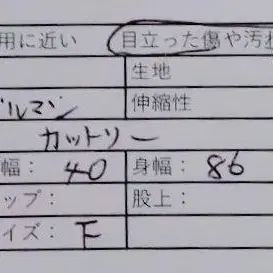 用に近い 目立った傷や汚
生地
ルマン 伸縮性
カットソー
幅： 40 身幅： 86
ップ： 股上：
イズ： F